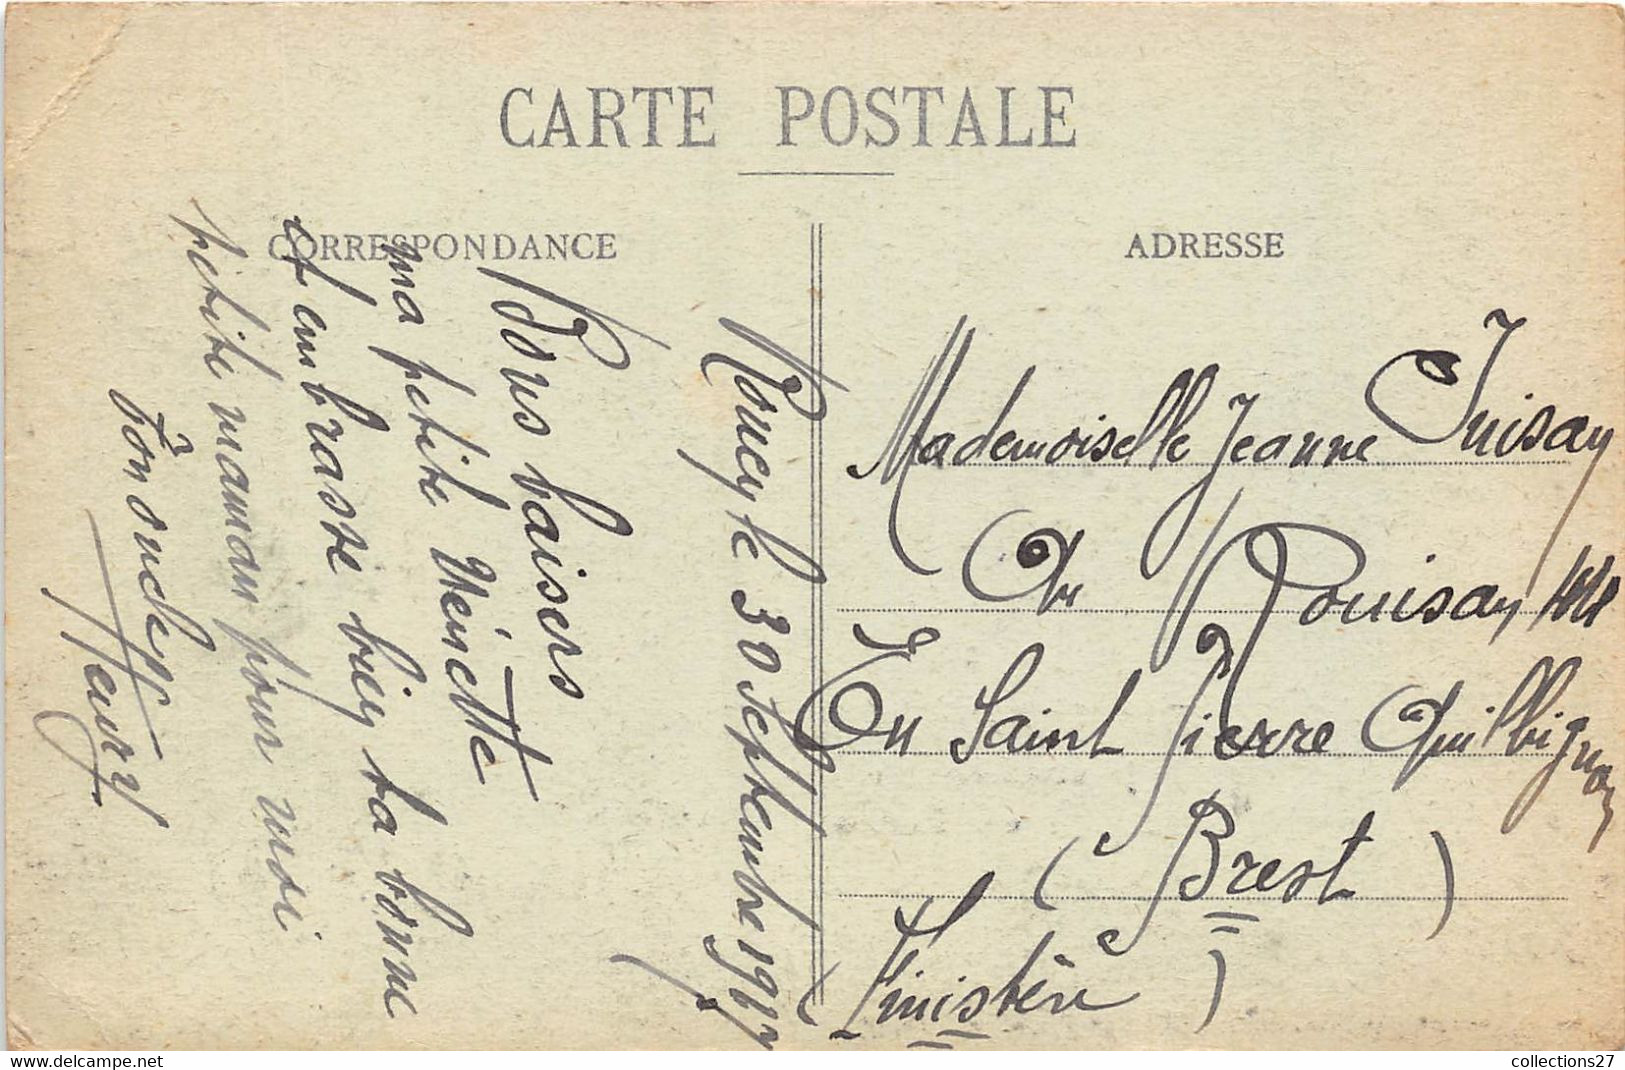 CARTE POSTALE
CORRESPONDANCE
ADRESSE
Roucy le 30 Septembre 19
Bons baisers
ma petite Nénette
et embrasse bien ta bonne
petite maman pour moi
Ton oncle
Henry
Mademoiselle Jeanne
En Saint Pierre Quilbignon
(Brest)
Finistère)
collections27